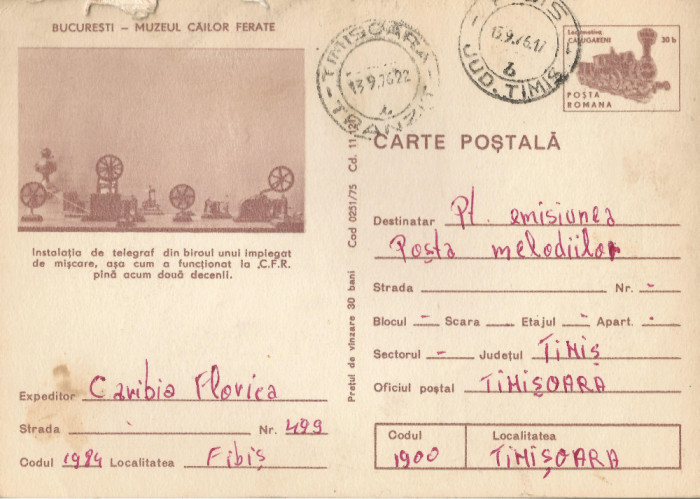 BUCURESTI – MUZEUL CĂILOR FERATE
Instalația de telegraf din biroul unui impiegat
de mișcare, așa cum a funcționat la C.F.R.
pînă acum două decenii.
Expeditor Caribia Florica
Strada Nr. 499
Codul 1984 Localitatea Fibiș
Prețul de vînzare 30 bani Cod 0251/75 Cd. 11
TIMIȘOARA
13.9.76.22
TRANZIT
13.9.76.17
b
JUD. TIMIȘ
Locomotiva
CĂLUGĂRENI 30 b
POȘTA
ROMANA
CARTE POȘTALĂ
Destinatar Pt. emisiunea
Poșta melodiilor
Strada Nr. -
Blocul - Scara - Etajul - Apart. -
Sectorul - Județul TIMIȘ
Oficiul poștal TIMIȘOARA
Codul Localitatea
1900 TIMIȘOARA